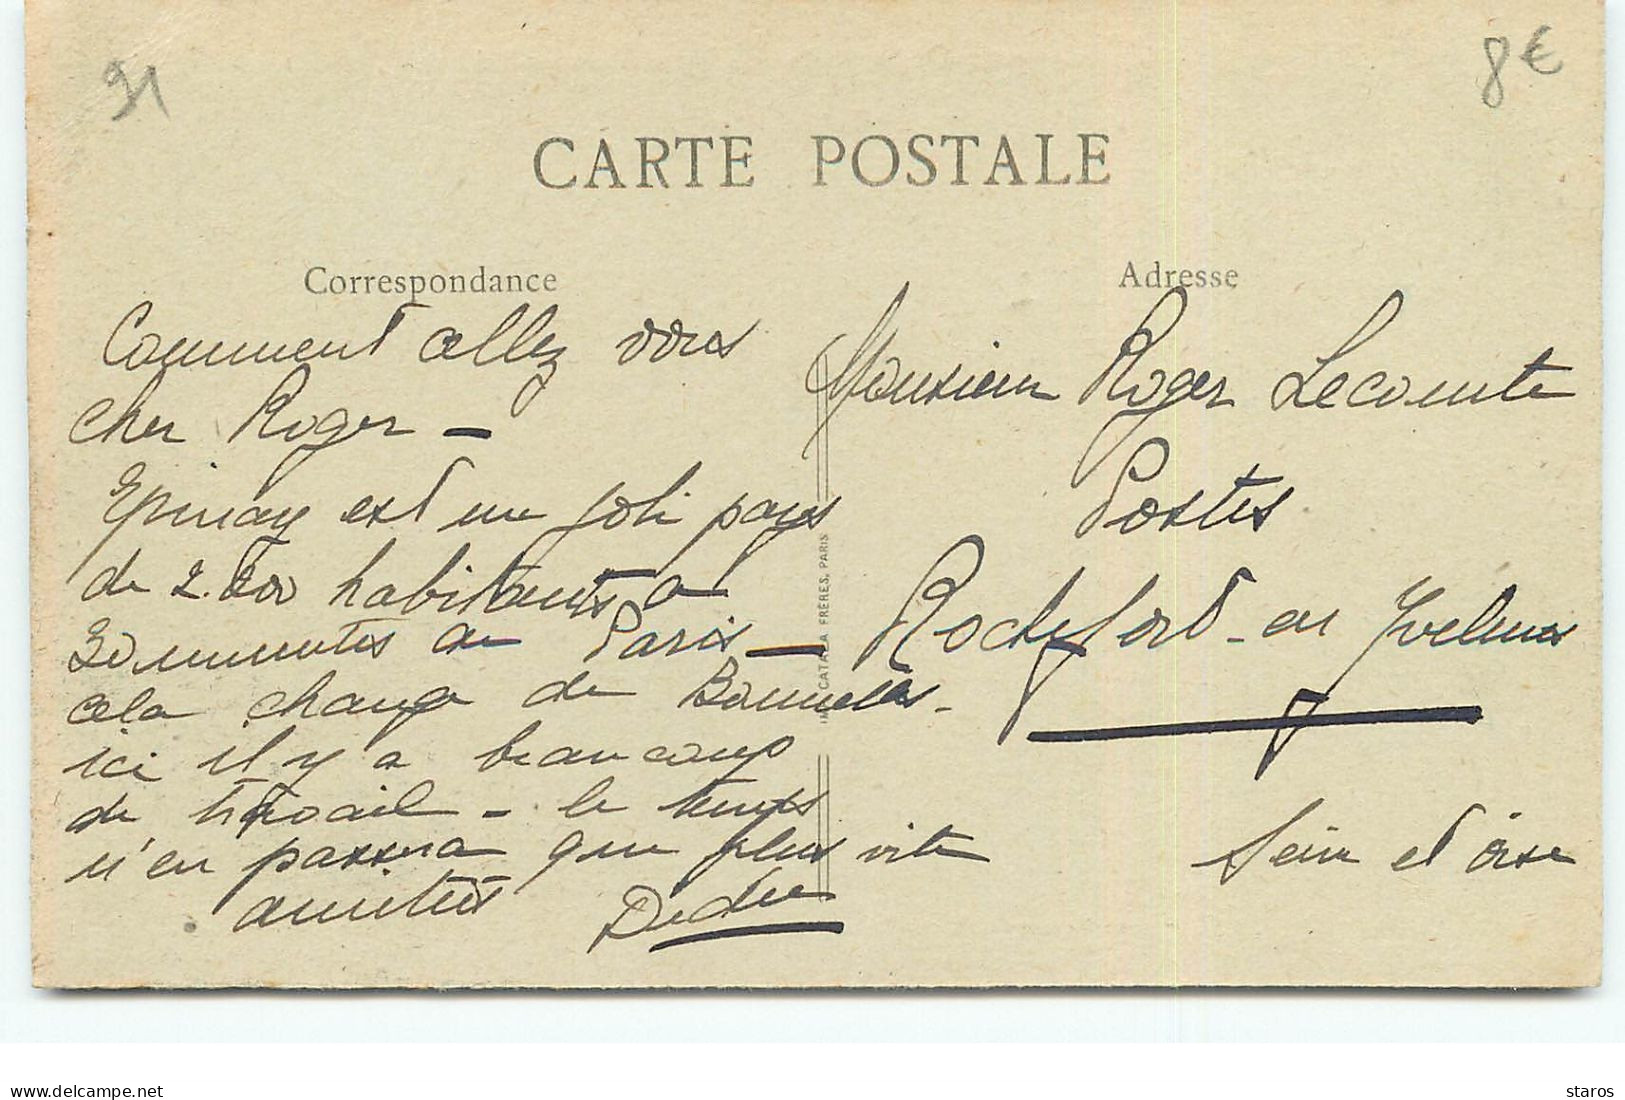 91
8€
CARTE POSTALE
Correspondance
Comment allez vous
cher Roger —
Epinay est un joli pays
de habitants a
30 minutes de Paris —
cela change de Bonnelles -
ici il y a beaucoup
de travail - le temps
n'en passera que plus vite
amitiés Dédée
IMP. CATALA FRÈRES, PARIS
Adresse
Monsieur Roger Lecomte
Postes
Rochefort-en Yvelines
Seine et Oise
delcampe.net
staros